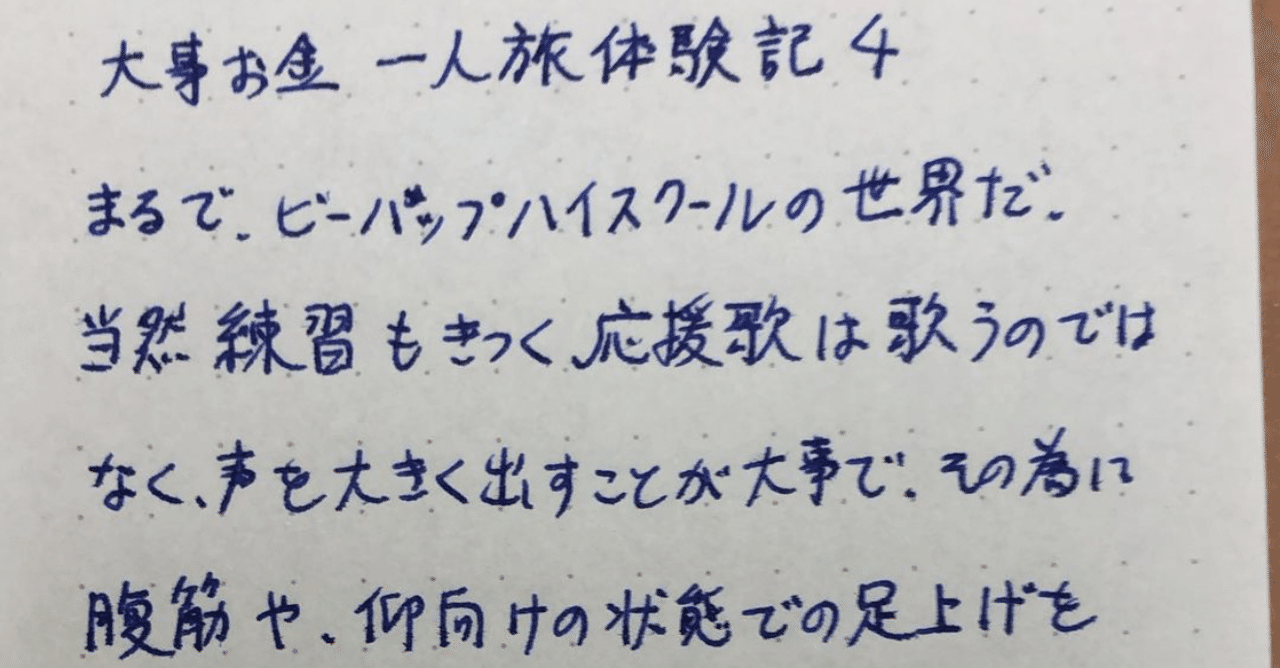 大事お金 一人旅体験記4
まるで、ビーバップハイスクールの世界だ。
当然練習もきつく、応援歌は歌うのでは
なく、声を大きく出すことが大事で、その為に
腹筋や、仰向けの状態での足上げを